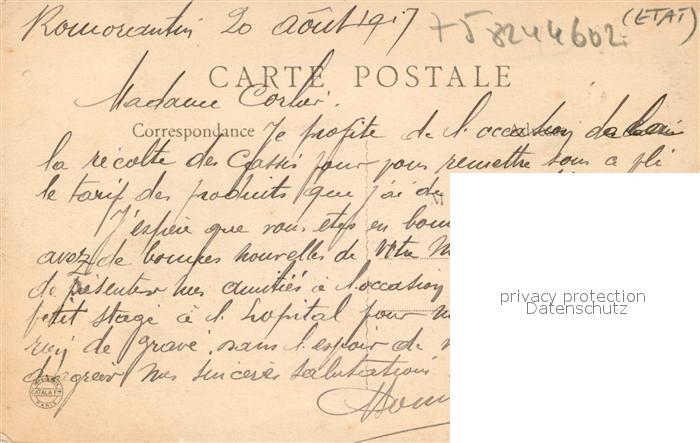 Romorantin 20 Août 1917 758244602 (ETAT)
CARTE POSTALE
Madame Corbier.
Correspondance Je profite de l'occasion de
la récolte des Cassis pour vous remettre sous ce pli
le tarif des produits que j'ai de
J'espère que vous etes en bon
avez de bonnes nouvelles de votre M
de présenter mes amitiés à l'occasion
petit stage à l'hopital pour
rien de grave. sans l'espoir de
d'agréer mes sincères salutations
privacy protection
Datenschutz
CATALA Fres
PARIS